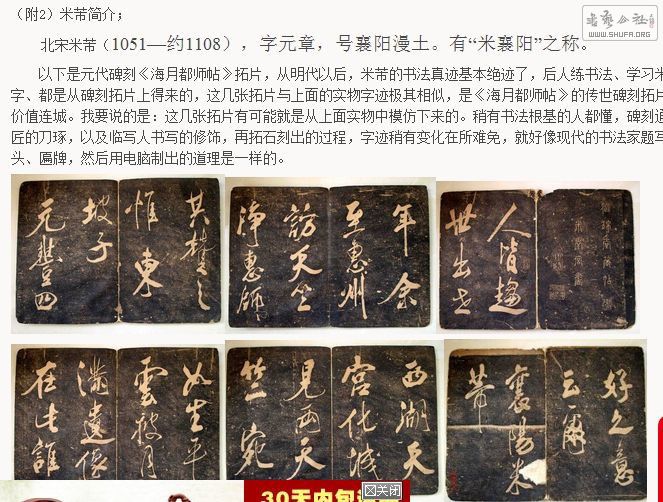 （附2）米芾简介；
WWW.SHUFA.ORG
北宋米芾（1051—约1108），字元章，号襄阳漫土。有“米襄阳”之称。
以下是元代碑刻《海月都师帖》拓片，从明代以后，米芾的书法真迹基本绝迹了，后人练书法、学习米
字、都是从碑刻拓片上得来的，这几张拓片与上面的实物字迹极其相似，是《海月都师帖》的传世碑刻拓片
价值连城。我要说的是：这几张拓片有可能就是从上面实物中模仿下来的。稍有书法根基的人都懂，碑刻通
匠的刀琢，以及临写人书写的修饰，再拓石刻出的过程，字迹稍有变化在所难免，就好像现代的书法家题写
头、匾牌，然后用电脑制出的道理是一样的。
其贊之
惟東
坡子
元豐四
年余
至惠州
訪天竺
淨惠師
人皆趨
世出世
如生平
雲披月
滿遺像
在此誰
西湖天
宮化滅
見兩天
竺宛
好久意
云爾
襄陽米
芾
30天内包
关闭